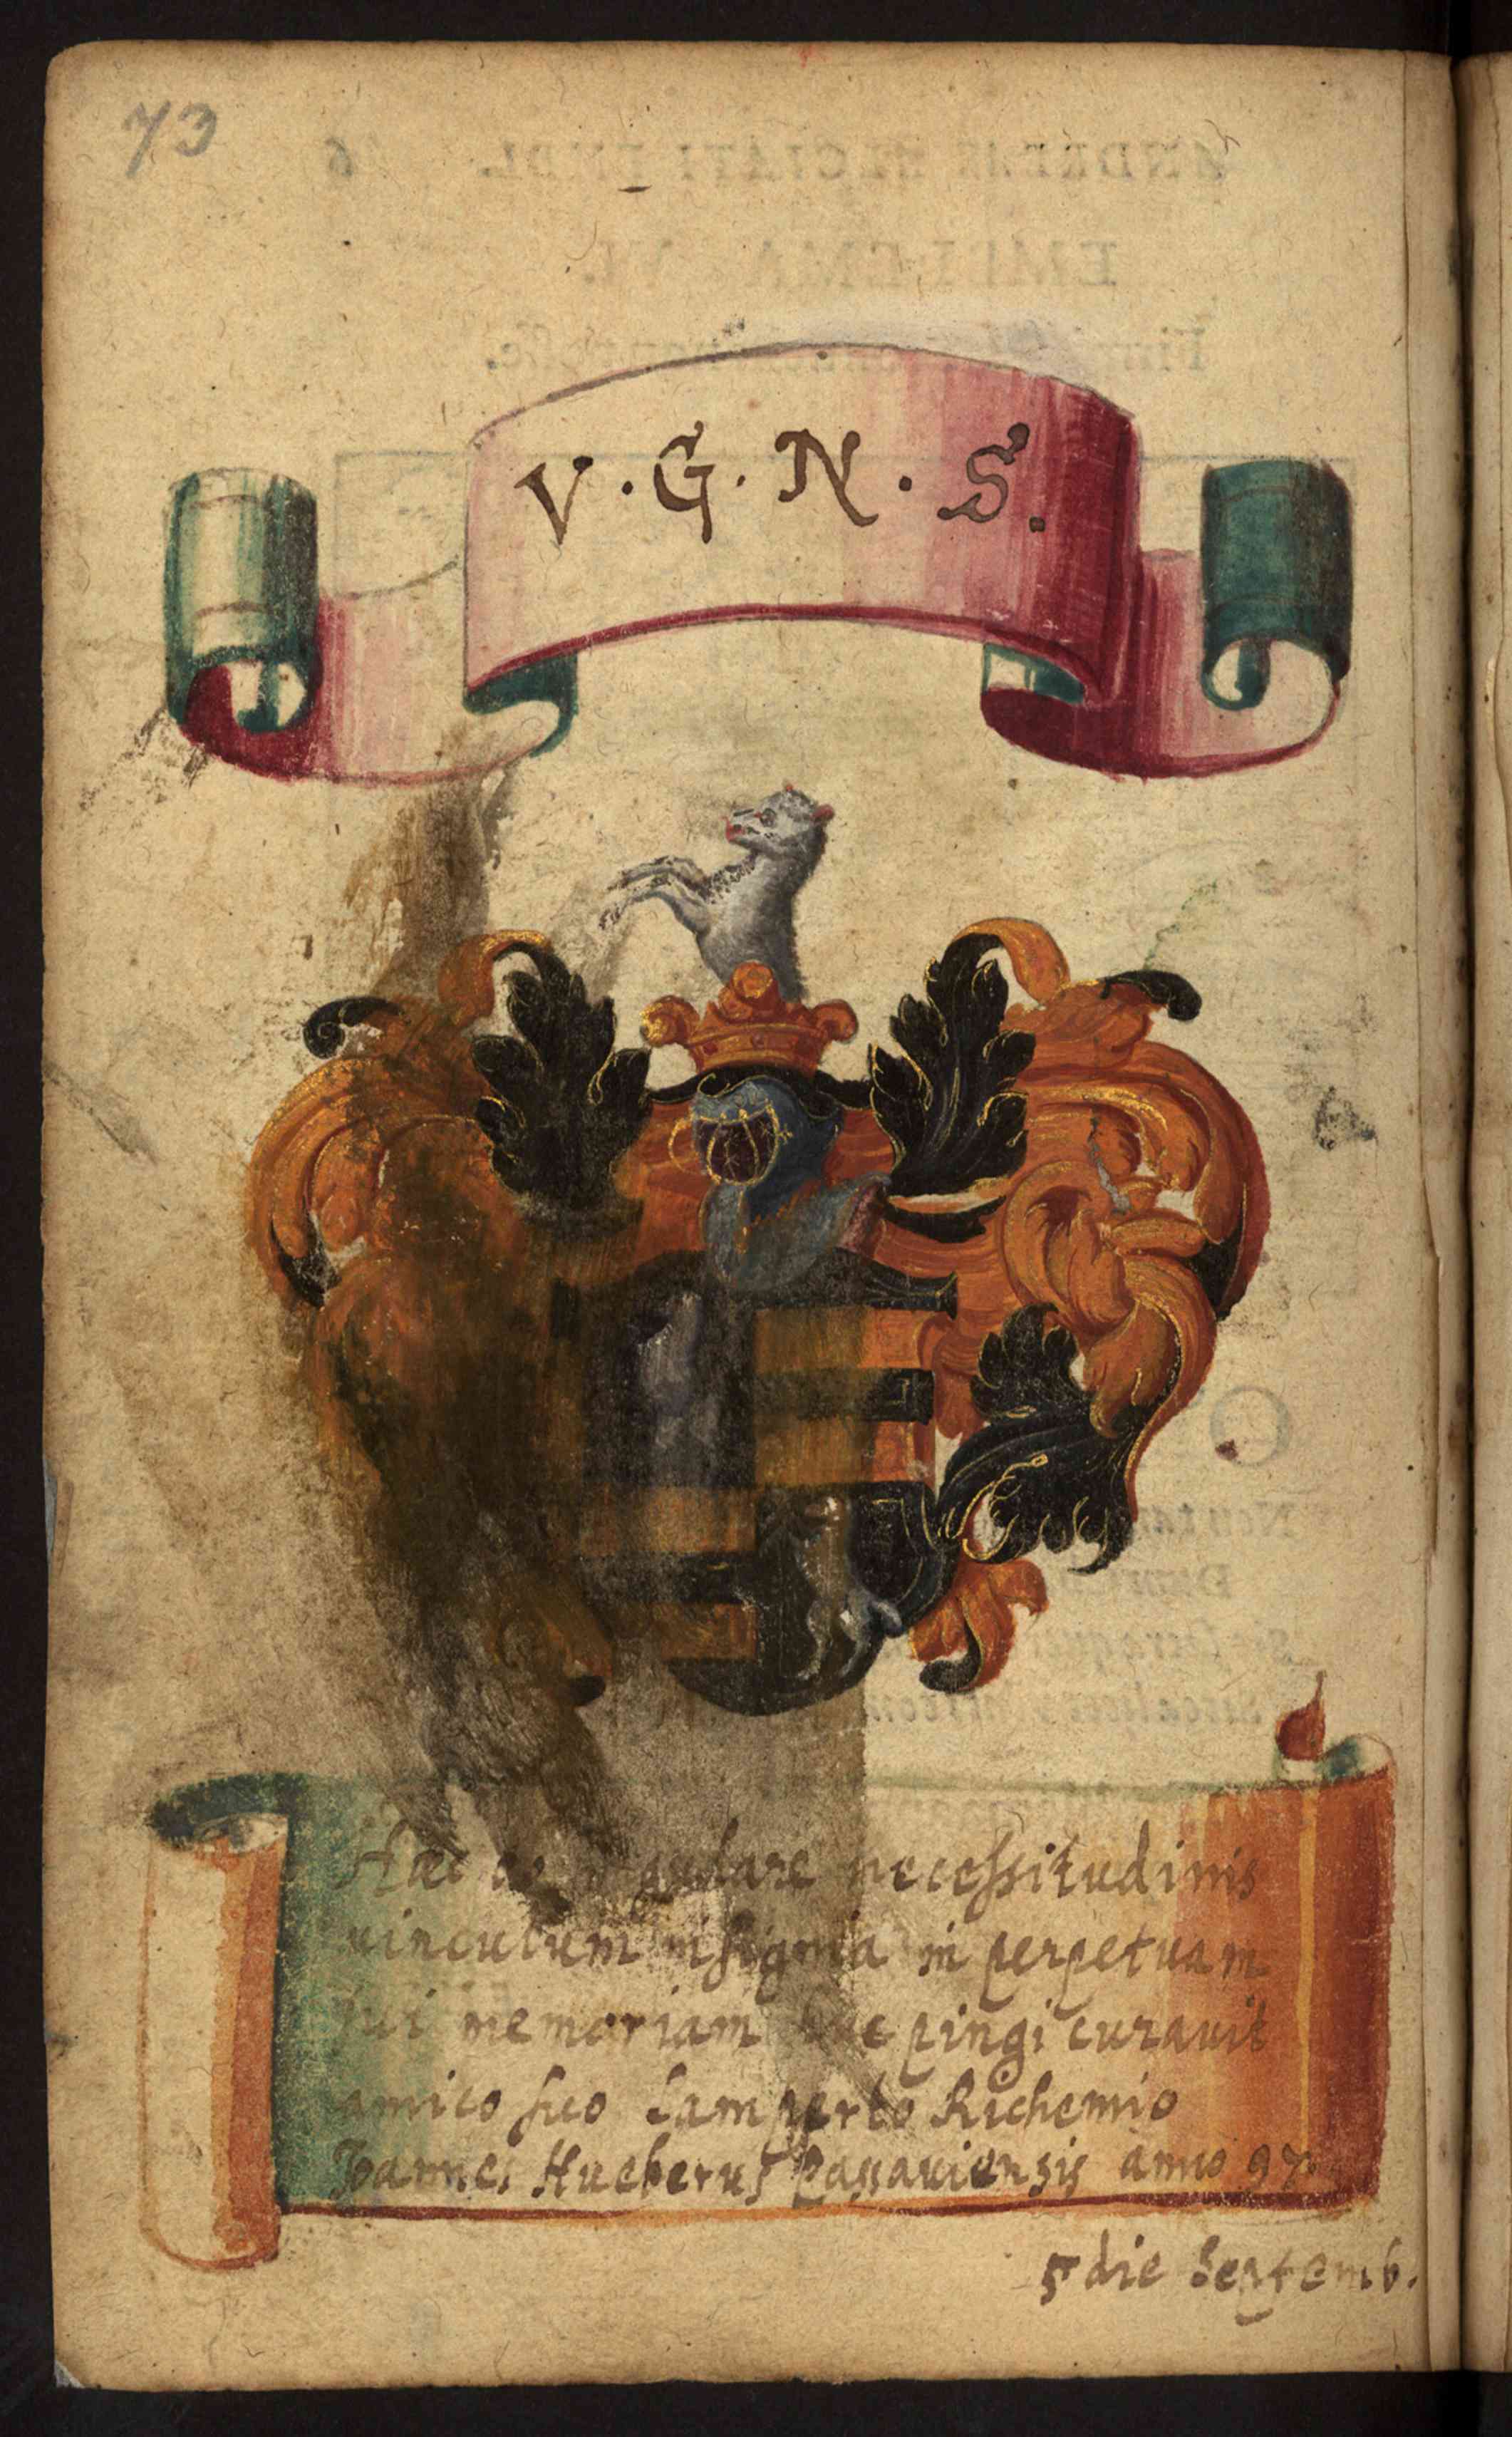 73
V. G. N. S.
necessitudinis
vinculum insignia in perpetuam
sui memoriam pingi curauit
amico suo Lamperto Richemio
Joannes Hueberus Passauiensis anno 97
5 die Septemb.